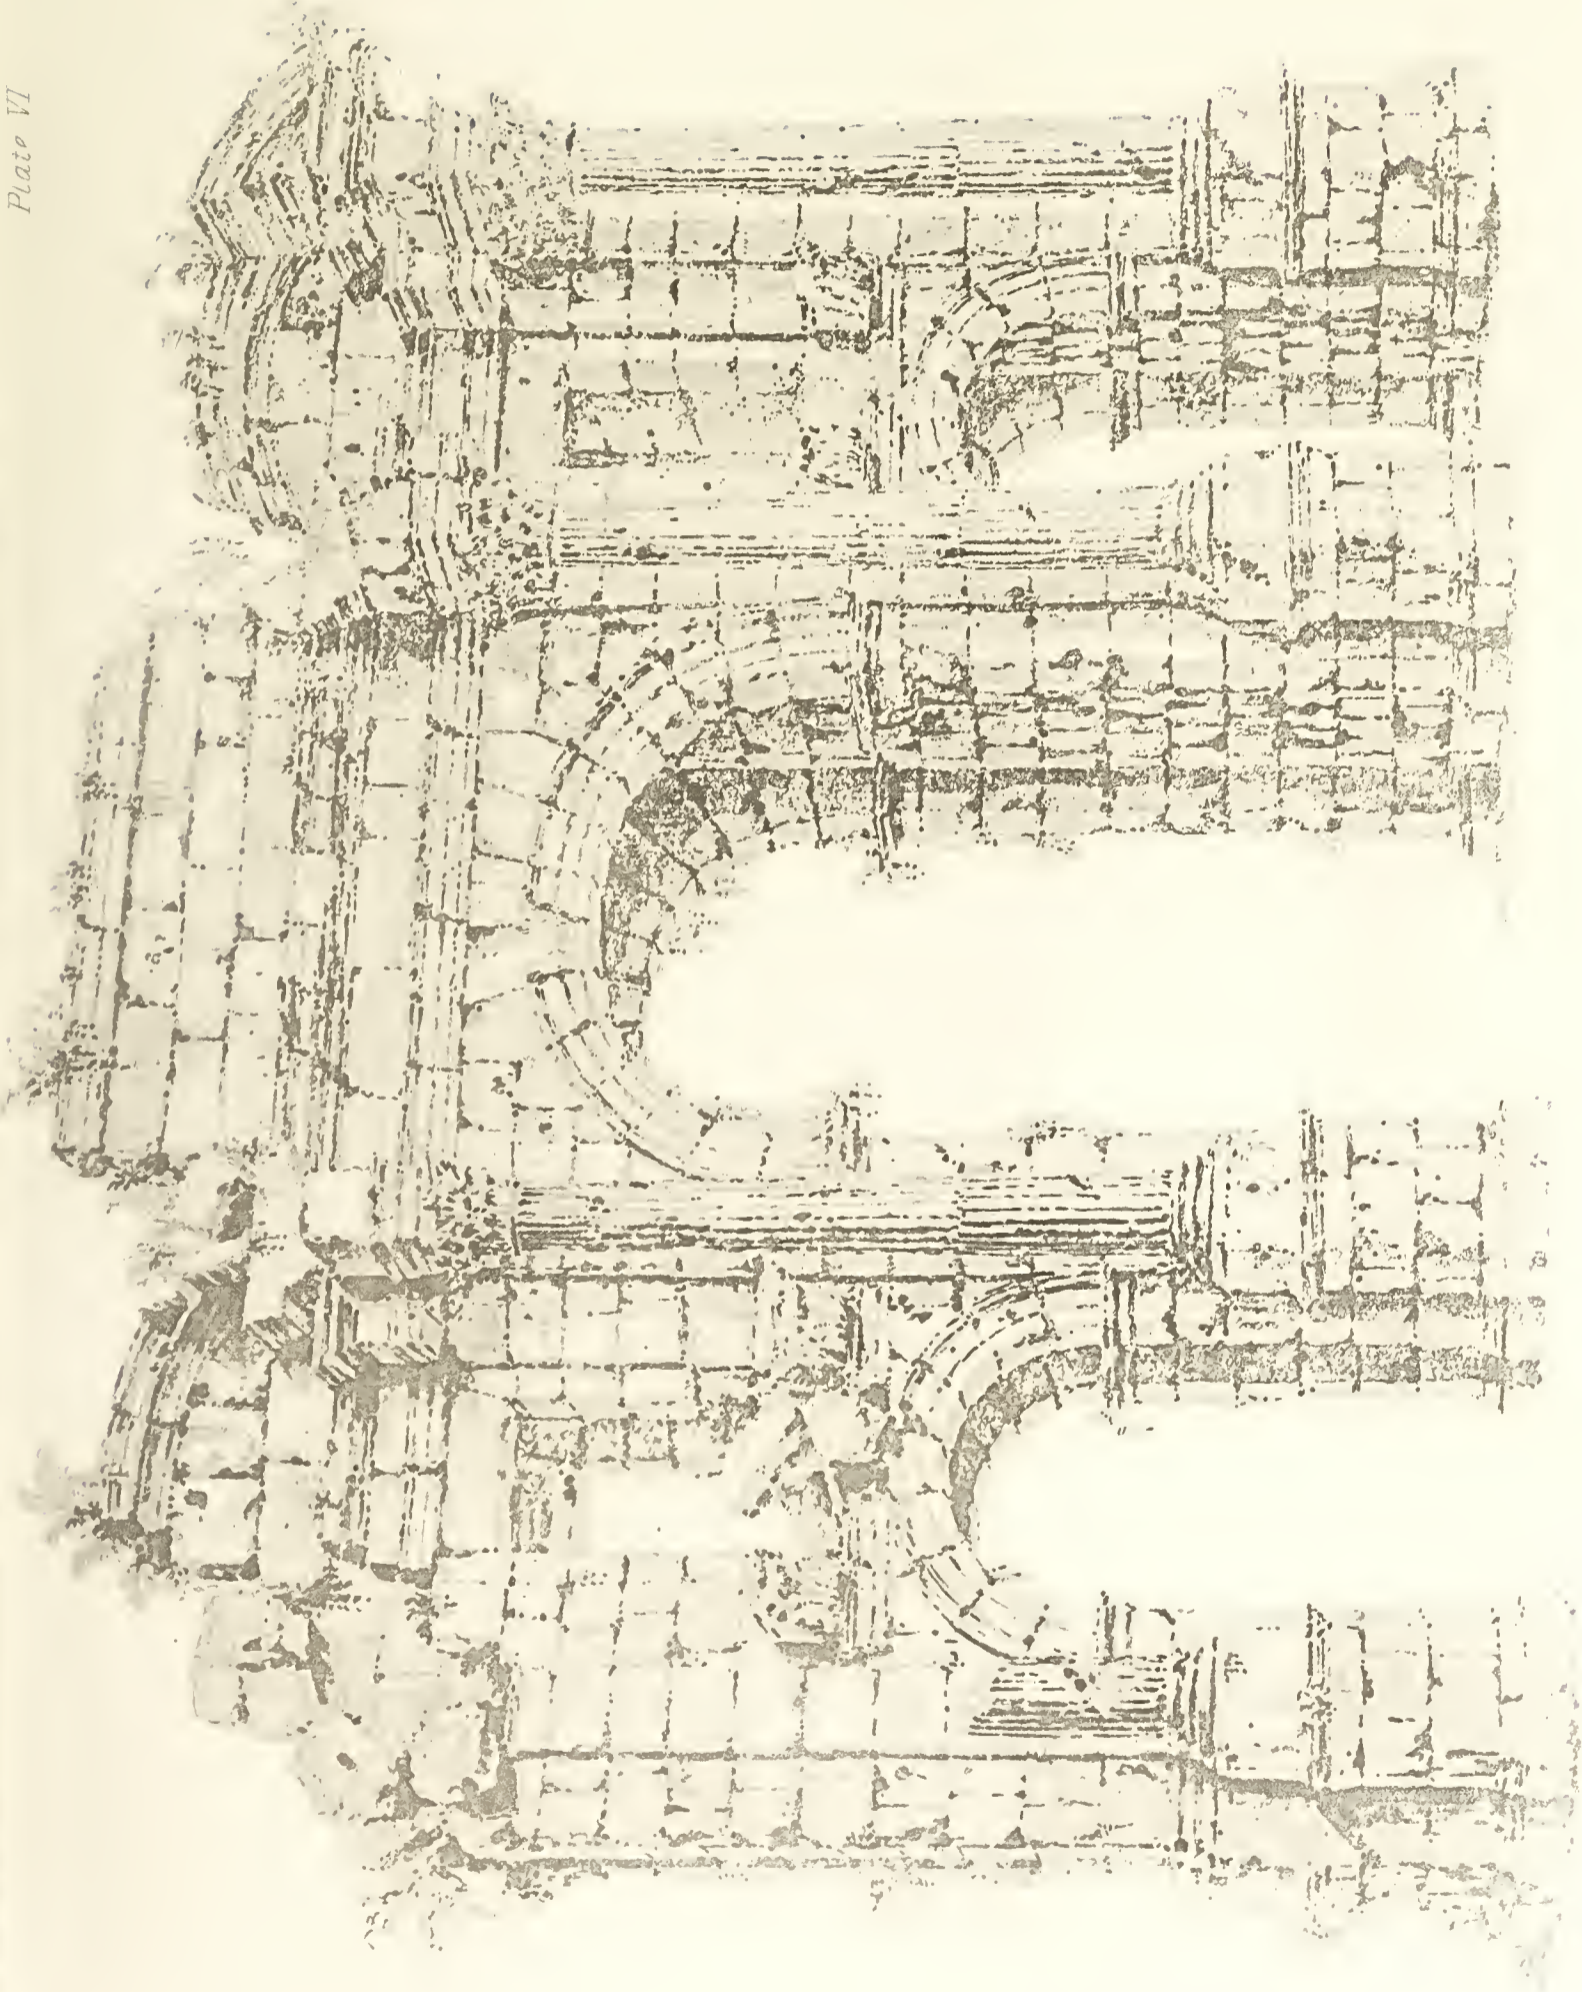 Plate VI